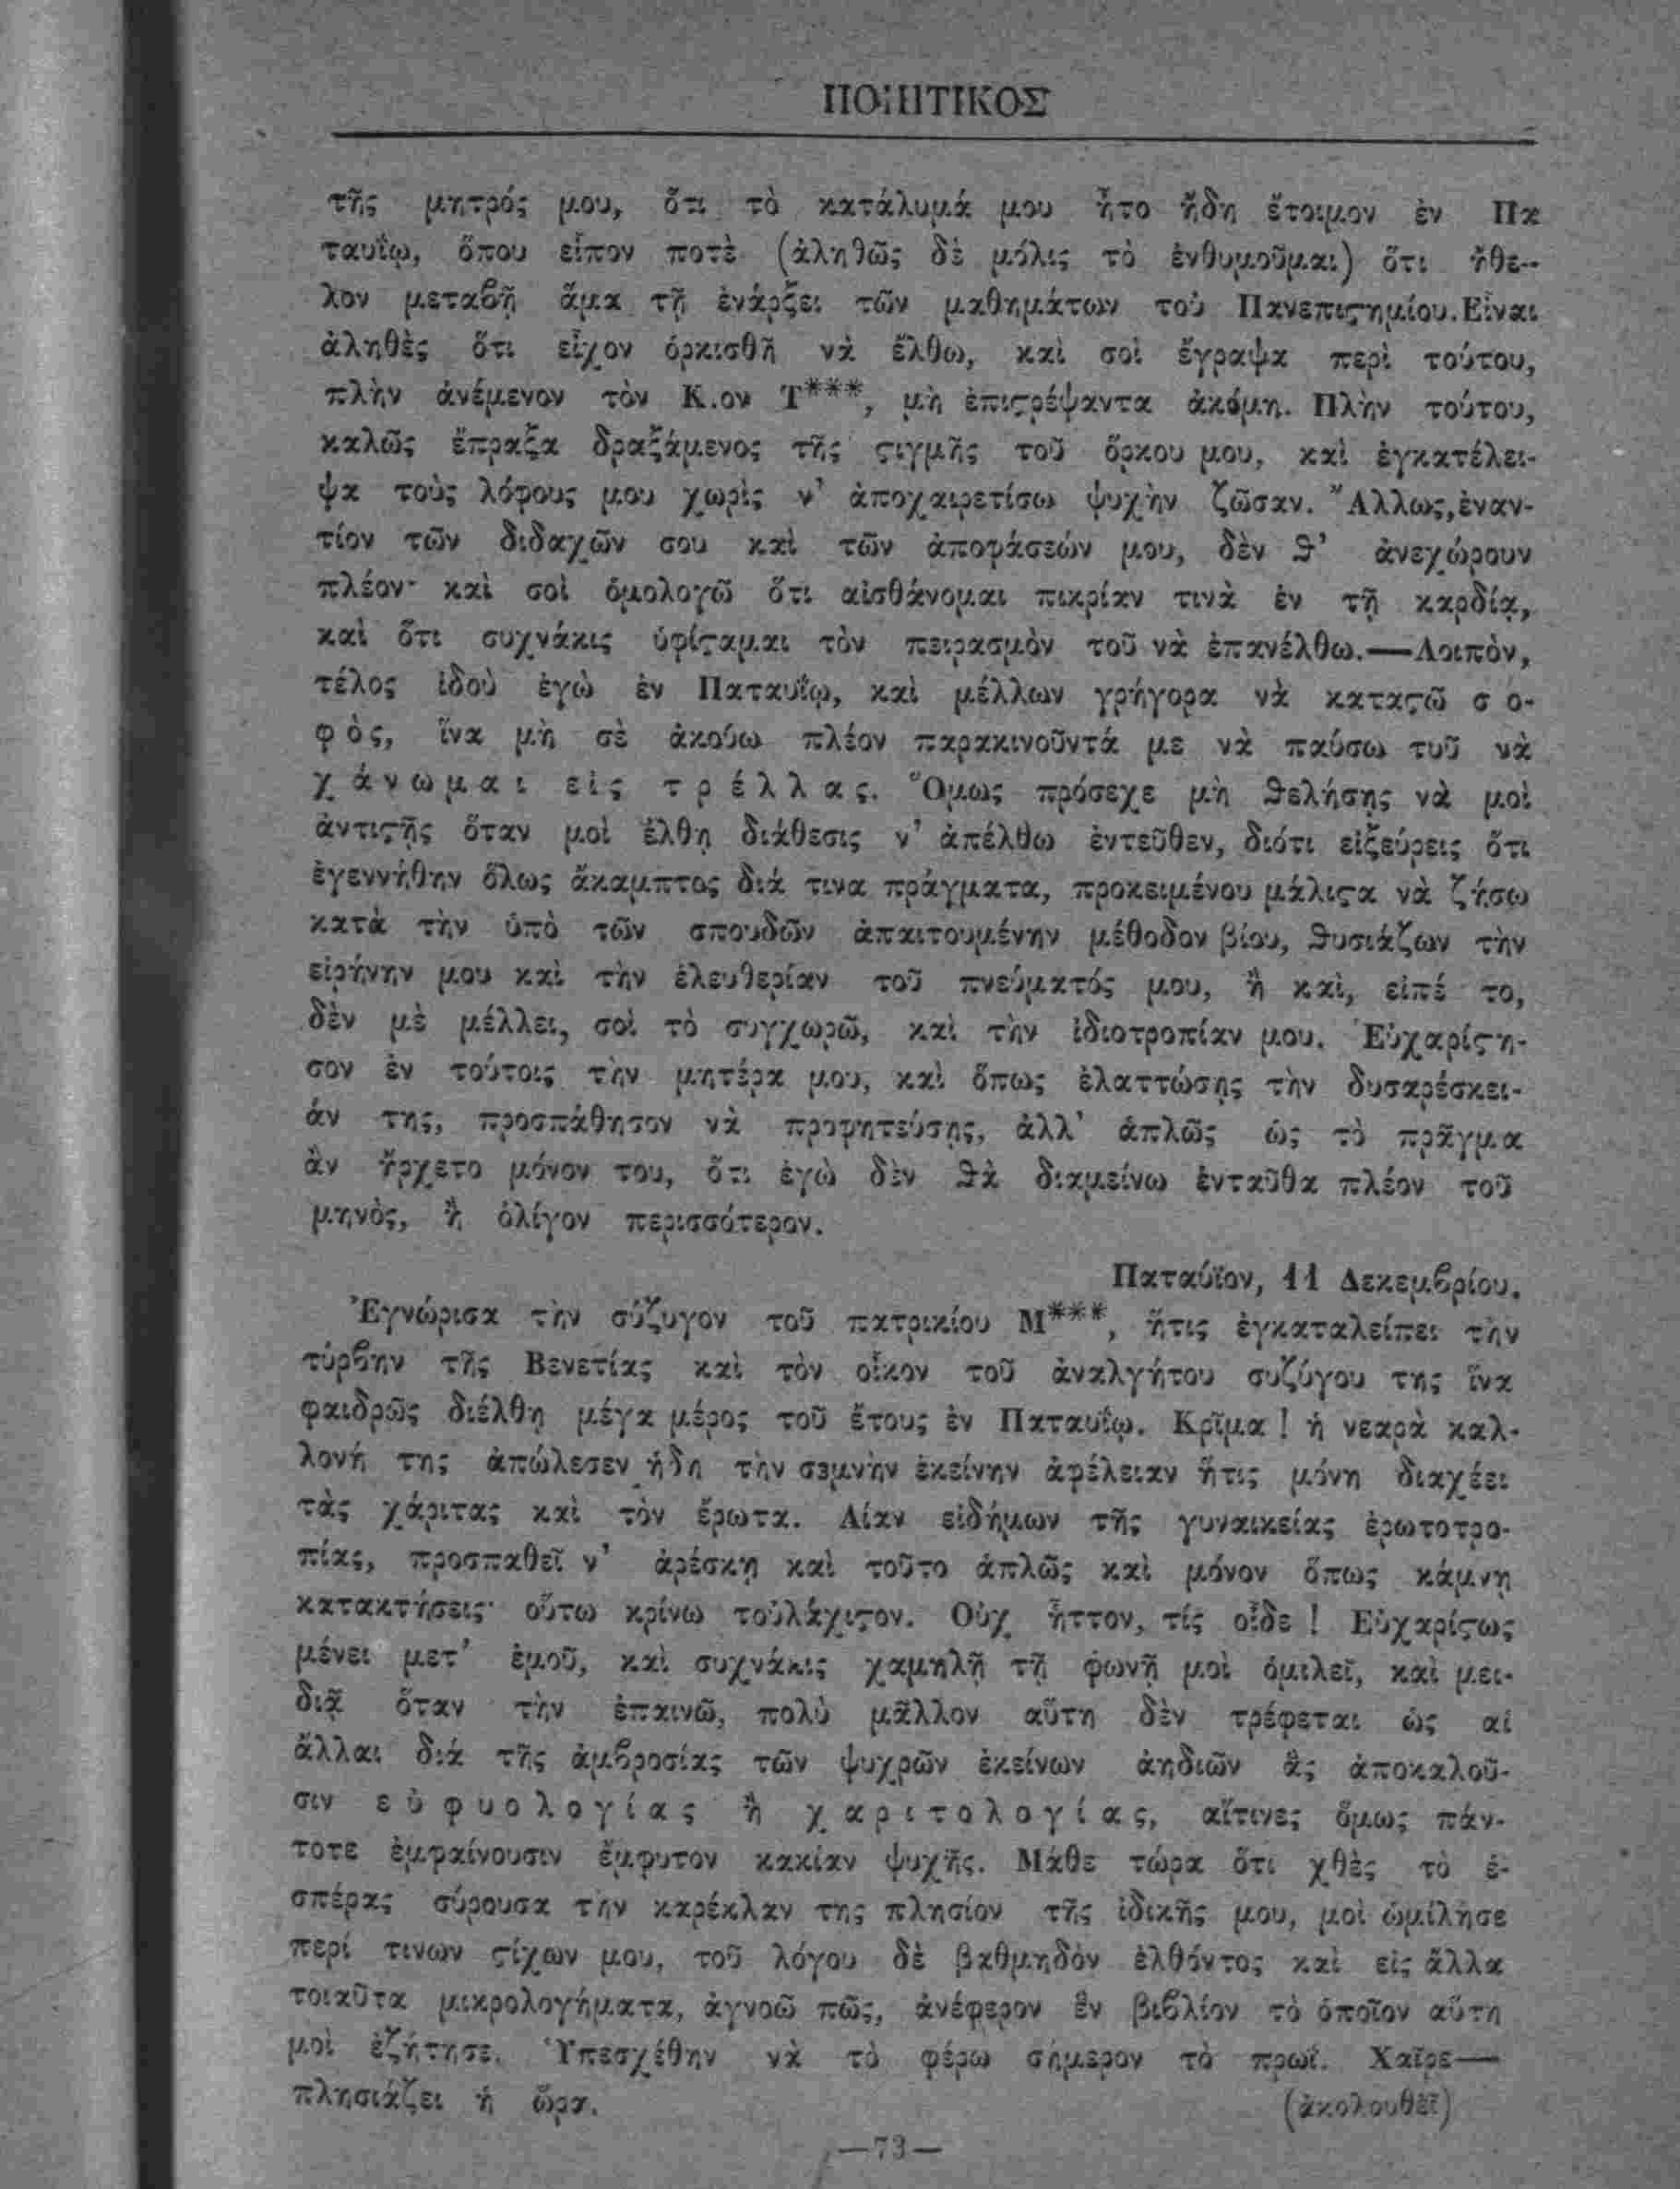 ΠΟΙΗΤΙΚΟΣ
τῆς μητρός μου, ὅτι τὸ κατάλυμά μου ἦτο ἤδη ἕτοιμον ἐν Πα
ταυΐῳ, ὅπου εἶπον ποτὲ (ἀληθῶς δὲ μόλις τὸ ἐνθυμοῦμαι) ὅτι ἤθε--
λον μεταβῆ ἅμα τῇ ἐνάρξει τῶν μαθημάτων τοῦ Πανεπιϛημίου. Εἶναι
ἀληθὲς ὅτι εἶχον ὁρκισθῆ νὰ ἔλθω, καὶ σοὶ ἔγραψα περὶ τούτου,
πλὴν ἀνέμενον τὸν Κ.ον Τ***, μὴ ἐπιϛρέψαντα ἀκόμη. Πλὴν τούτου,
καλῶς ἔπραξα δραξάμενος τῆς ϛιγμῆς τοῦ ὅρκου μου, καὶ ἐγκατέλει-
ψα τοὺς λόφους μου χωρὶς ν' ἀποχαιρετίσω ψυχὴν ζῶσαν. Ἄλλως, ἐναν-
τίον τῶν διδαχῶν σου καὶ τῶν ἀποφάσεών μου, δὲν ϑ' ἀνεχώρουν
πλέον· καὶ σοὶ ὁμολογῶ ὅτι αἰσθάνομαι πικρίαν τινὰ ἐν τῇ καρδίᾳ,
καὶ ὅτι συχνάκις ὑφίϛαμαι τὸν πειρασμὸν τοῦ νὰ ἐπανέλθω.—Λοιπὸν,
τέλος ἰδοὺ ἐγὼ ἐν Παταυΐῳ, καὶ μέλλων γρήγορα νὰ καταϛῶ σ ο-
φ ὸ ς, ἵνα μὴ σὲ ἀκούω πλέον παρακινοῦντά με νὰ παύσω τοῦ νὰ
χ ά ν ω μ α ι ε ἰ ς τ ρ έ λ λ α ς. Ὅμως πρόσεχε μὴ ϑελήσῃς νὰ μοὶ
ἀντιϛῇς ὅταν μοὶ ἔλθῃ διάθεσις ν' ἀπέλθω ἐντεῦθεν, διότι εἰξεύρεις ὅτι
ἐγεννήθην ὅλως ἄκαμπτος διά τινα πράγματα, προκειμένου μάλιϛα νὰ ζήσω
κατὰ τὴν ὑπὸ τῶν σπουδῶν ἀπαιτουμένην μέθοδον βίου, ϑυσιάζων τὴν
εἰρήνην μου καὶ τὴν ἐλευθερίαν τοῦ πνεύματός μου, ἢ καὶ, εἰπέ το,
δὲν μὲ μέλλει, σοὶ τὸ συγχωρῶ, καὶ τὴν ἰδιοτροπίαν μου. Εὐχαρίϛη-
σον ἐν τούτοις τὴν μητέρα μου, καὶ ὅπως ἐλαττώσῃς τὴν δυσαρέσκει-
άν της, προσπάθησον νὰ προφητεύσῃς, ἀλλ' ἁπλῶς ὡς τὸ πρᾶγμα
ἂν ἤρχετο μόνον του, ὅτι ἐγὼ δὲν ϑὰ διαμείνω ἐνταῦθα πλέον τοῦ
μηνὸς, ἢ ὀλίγον περισσότερον.
Παταύϊον, 11 Δεκεμβρίου.
Ἐγνώρισα τὴν σύζυγον τοῦ πατρικίου Μ***, ἥτις ἐγκαταλείπει τὴν
τύρβην τῆς Βενετίας καὶ τὸν οἶκον τοῦ ἀναλγήτου συζύγου της ἵνα
φαιδρῶς διέλθῃ μέγα μέρος τοῦ ἔτους ἐν Παταυΐῳ. Κρῖμα ! ἡ νεαρὰ καλ-
λονή της ἀπώλεσεν ἤδη τὴν σεμνὴν ἐκείνην ἀφέλειαν ἥτις μόνη διαχέει
τὰς χάριτας καὶ τὸν ἔρωτα. Λίαν εἰδήμων τῆς γυναικείας ἐρωτοτρο-
πίας, προσπαθεῖ ν' ἀρέσκῃ καὶ τοῦτο ἁπλῶς καὶ μόνον ὅπως κάμνῃ
κατακτήσεις· οὕτω κρίνω τοὐλάχιϛον. Οὐχ ἧττον, τίς οἶδε ! Εὐχαρίϛως
μένει μετ' ἐμοῦ, καὶ συχνάκις χαμηλῇ τῇ φωνῇ μοὶ ὁμιλεῖ, καὶ μει-
διᾷ ὅταν τὴν ἐπαινῶ, πολὺ μᾶλλον αὕτη δὲν τρέφεται ὡς αἱ
ἄλλαι διά τῆς ἀμβροσίας τῶν ψυχρῶν ἐκείνων ἀηδιῶν ἃς ἀποκαλοῦ-
σιν ε ὐ φ υ ο λ ο γ ί α ς ἢ χ α ρ ι τ ο λ ο γ ί α ς, αἵτινες ὅμως πάν-
τοτε ἐμφαίνουσιν ἔμφυτον κακίαν ψυχῆς. Μάθε τώρα ὅτι χθὲς τὸ ἑ-
σπέρας σύρουσα τὴν καρέκλαν της πλησίον τῆς ἰδικῆς μου, μοὶ ὡμίλησε
περί τινων ϛίχων μου, τοῦ λόγου δὲ βαθμηδὸν ἐλθόντος καὶ εἰς ἄλλα
τοιαῦτα μικρολογήματα, ἀγνοῶ πῶς, ἀνέφερον ἓν βιβλίον τὸ ὁποῖον αὕτη
μοὶ ἐζήτησε. Ὑπεσχέθην νὰ τὸ φέρω σήμερον τὸ πρωΐ. Χαῖρε—
πλησιάζει ἡ ὥρα. (ἀκολουθεῖ)
—73—